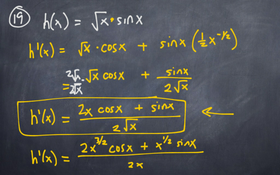 19 h(x) = √x · sinx
h'(x) = √x · cosx + sinx (½x^(-1/2))
= 2√x/2√x · √x cosx + sinx/2√x
h'(x) = (2x cosx + sinx)/(2√x) ←
h'(x) = (2x^(3/2) cosx + x^(1/2) sinx)/(2x)